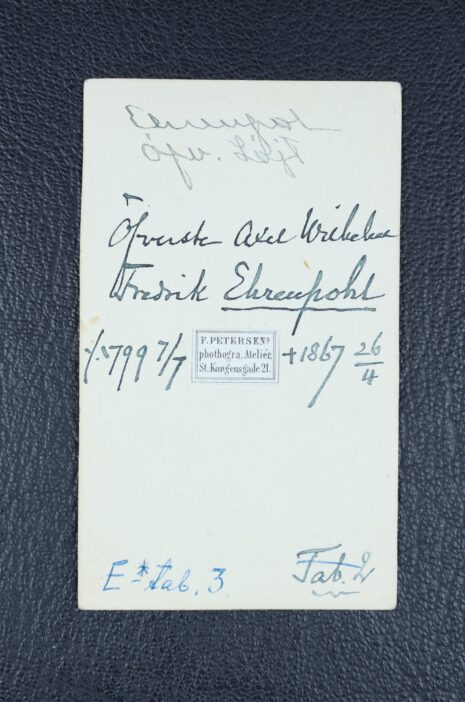 Ehrenpohl
Öfv. Löjt
Öfverste Axel Wilhelm
Fredrik Ehrenpohl
1799 7/7
F. PETERSENS
phothogra. Atelier
St. Kongensgade 21.
+1867 26/4
E* tab. 3
Tab. 2